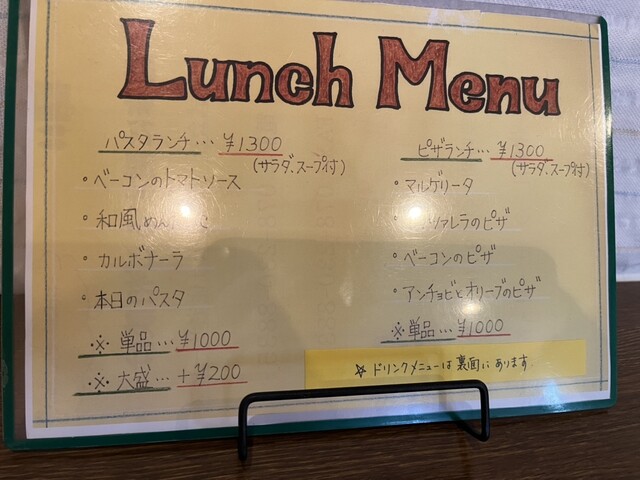 Lunch Menu
パスタランチ… ¥1300
(サラダ、スープ付)
・ベーコンのトマトソース
・和風めん
・カルボナーラ
・本日のパスタ
※単品… ¥1000
※大盛… +¥200
ピザランチ… ¥1300
(サラダ、スープ付)
・マルゲリータ
・ツァレラのピザ
・ベーコンのピザ
・アンチョビとオリーブのピザ
※単品… ¥1000
☆ドリンクメニューは裏面にあります。